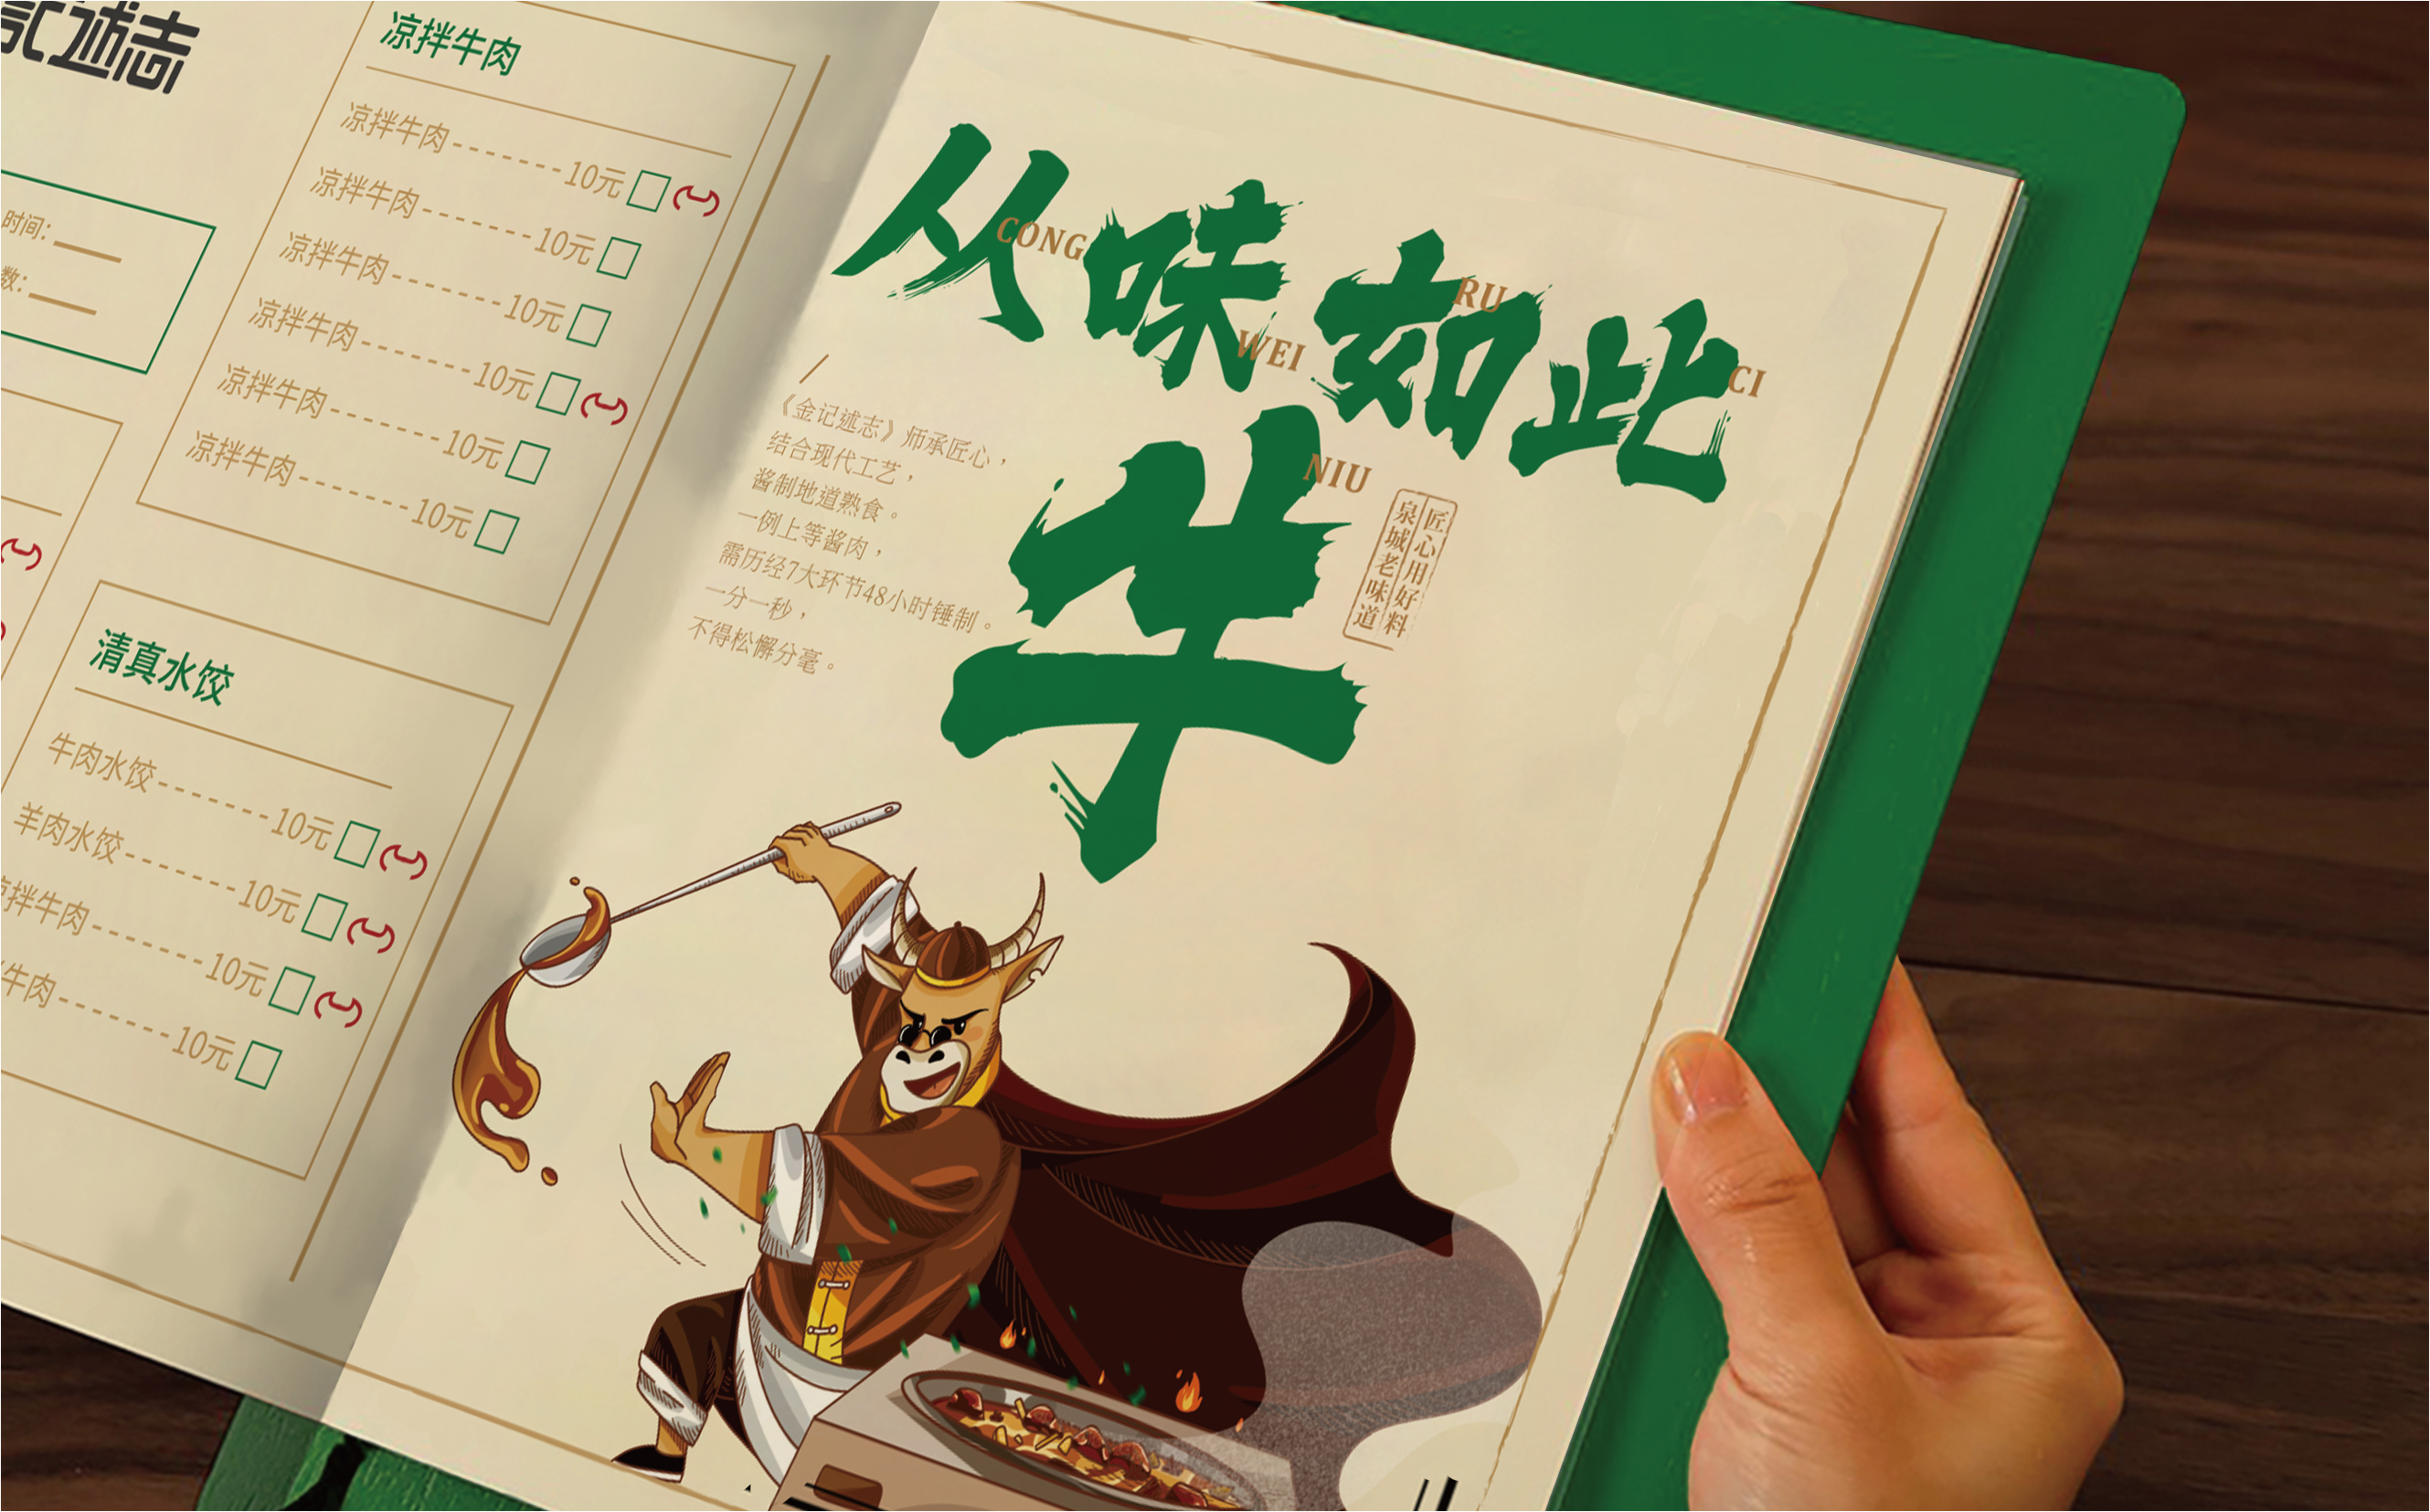 記述志
时间:
数:
凉拌牛肉
凉拌牛肉--------10元
凉拌牛肉--------10元
凉拌牛肉--------10元
凉拌牛肉--------10元
凉拌牛肉--------10元
凉拌牛肉--------10元
清真水饺
牛肉水饺--------10元
羊肉水饺--------10元
拌牛肉--------10元
牛肉--------10元
从味如此
CONG
WEI
RU
CI
牛
NIU
匠心用好料
泉城老味道
《金记述志》师承匠心，
结合现代工艺，
酱制地道熟食。
一例上等酱肉，
需历经7大环节48小时锤制。
一分一秒，
不得松懈分毫。